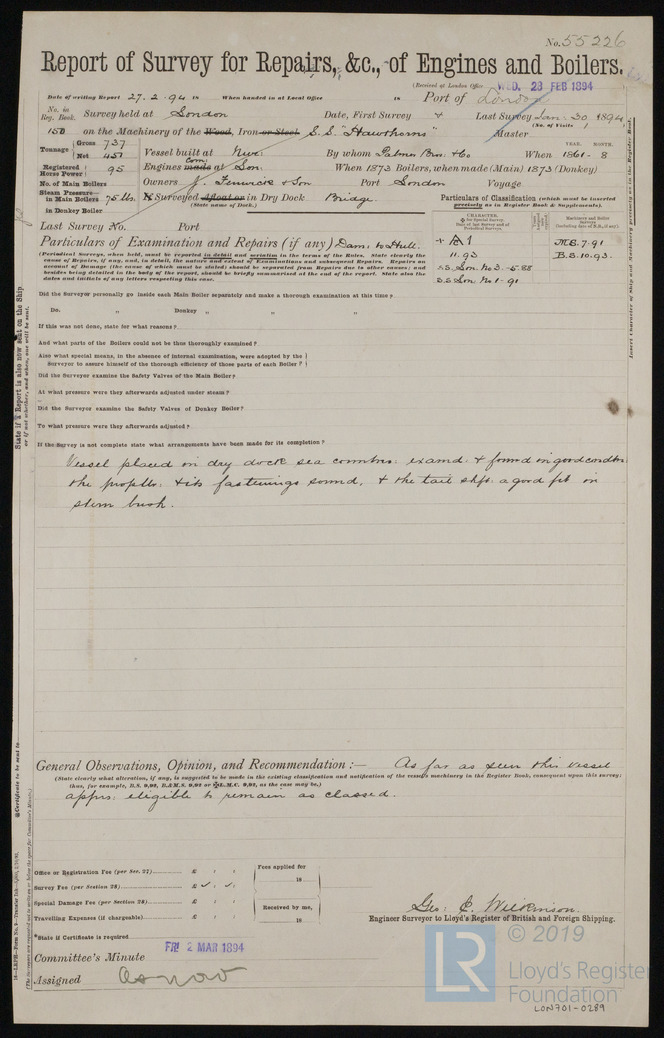 No. 55226
Report of Survey for Repairs, &c., of Engines and Boilers.
(Received at London Office WED. 28 FEB 1894
Date of writing Report 27.2.94 18 When handed in at Local Office 18 Port of London
No. in Reg. Book. Survey held at London Date, First Survey + Last Survey Jan: 30 1894
(No. of Visits 1)
150 on the Machinery of the Wood, Iron or Steel S.S. "Hawthorns" Master
Tonnage Gross 737 Net 457 Vessel built at Nwc: By whom Palmer Bros: & Co When 1861 - 8
YEAR. MONTH.
Registered Horse Power 95 Engines com: made at Son: When 1873 Boilers, when made (Main) 1873 (Donkey)
No. of Main Boilers Owners J. Fenwick & Son Port London Voyage
Steam Pressure— in Main Boilers 75 lbs. If Surveyed afloat or in Dry Dock Bridge
(State name of Dock.)
in Donkey Boiler
Particulars of Classification (which must be inserted precisely as in Register Book & Supplements).
Last Survey No. Port
CHARACTER.
Machinery and Boiler Surveys
Particulars of Examination and Repairs (if any) Dam: to Hull.
+ A 1 M.S. 7.91
11.93 B.S. 10.93.
S.S. Lon: No 3 - 5.88
S.S. Lon: No 1 - 91
(Periodical Surveys, when held, must be reported in detail and seriatim in the terms of the Rules. State clearly the
cause of Repairs, if any, and, in detail, the nature and extent of Examinations and subsequent Repairs. Repairs on
account of Damage (the cause of which must be stated) should be separated from Repairs due to other causes; and
besides being detailed in the body of the report, should be briefly summarised at the end of the report. State also the
dates and initials of any letters respecting this case.
Did the Surveyor personally go inside each Main Boiler separately and make a thorough examination at this time?
Do. " Donkey " " "
If this was not done, state for what reasons?
And what parts of the Boilers could not be thus thoroughly examined?
Also what special means, in the absence of internal examination, were adopted by the
Surveyor to assure himself of the thorough efficiency of those parts of each Boiler?
Did the Surveyor examine the Safety Valves of the Main Boiler?
At what pressure were they afterwards adjusted under steam?
Did the Surveyor examine the Safety Valves of Donkey Boiler?
To what pressure were they afterwards adjusted?
If the Survey is not complete state what arrangements have been made for its completion?
Vessel placed in dry dock sea connctns: examd: & found in good condtn
the proplls: & its fastenings sound, & the tail shft: a good fit in
stern bush.
General Observations, Opinion, and Recommendation:— As far as seen this vessel
(State clearly what alteration, if any, is suggested to be made in the existing classification and notification of the vessel's machinery in the Register Book, consequent upon this survey;
thus, for example, B.S. 9,92, B.&M.S. 9,92 or L.M.C. 9,92, as the case may be.)
apprs: eligible to remain as classed.
Office or Registration Fee (per Sec. 27) £ : :
Survey Fee (per Section 28) £
Special Damage Fee (per Section 28) £ : :
Travelling Expenses (if chargeable) £ : :
Fees applied for
18
Received by me,
18
Geo: C. Wilkinson.
Engineer Surveyor to Lloyd's Register of British and Foreign Shipping.
State if Certificate is required
Committee's Minute FRI 2 MAR 1894
Assigned As now
State if a Report is also now sent on the Ship
or if not whether, and when, one will be sent.
Certificate to be sent to
Insert Character of Ship and Machinery precisely as in the Register Book.
© 2019
LR
Lloyd's Register
Foundation
LON701-0289